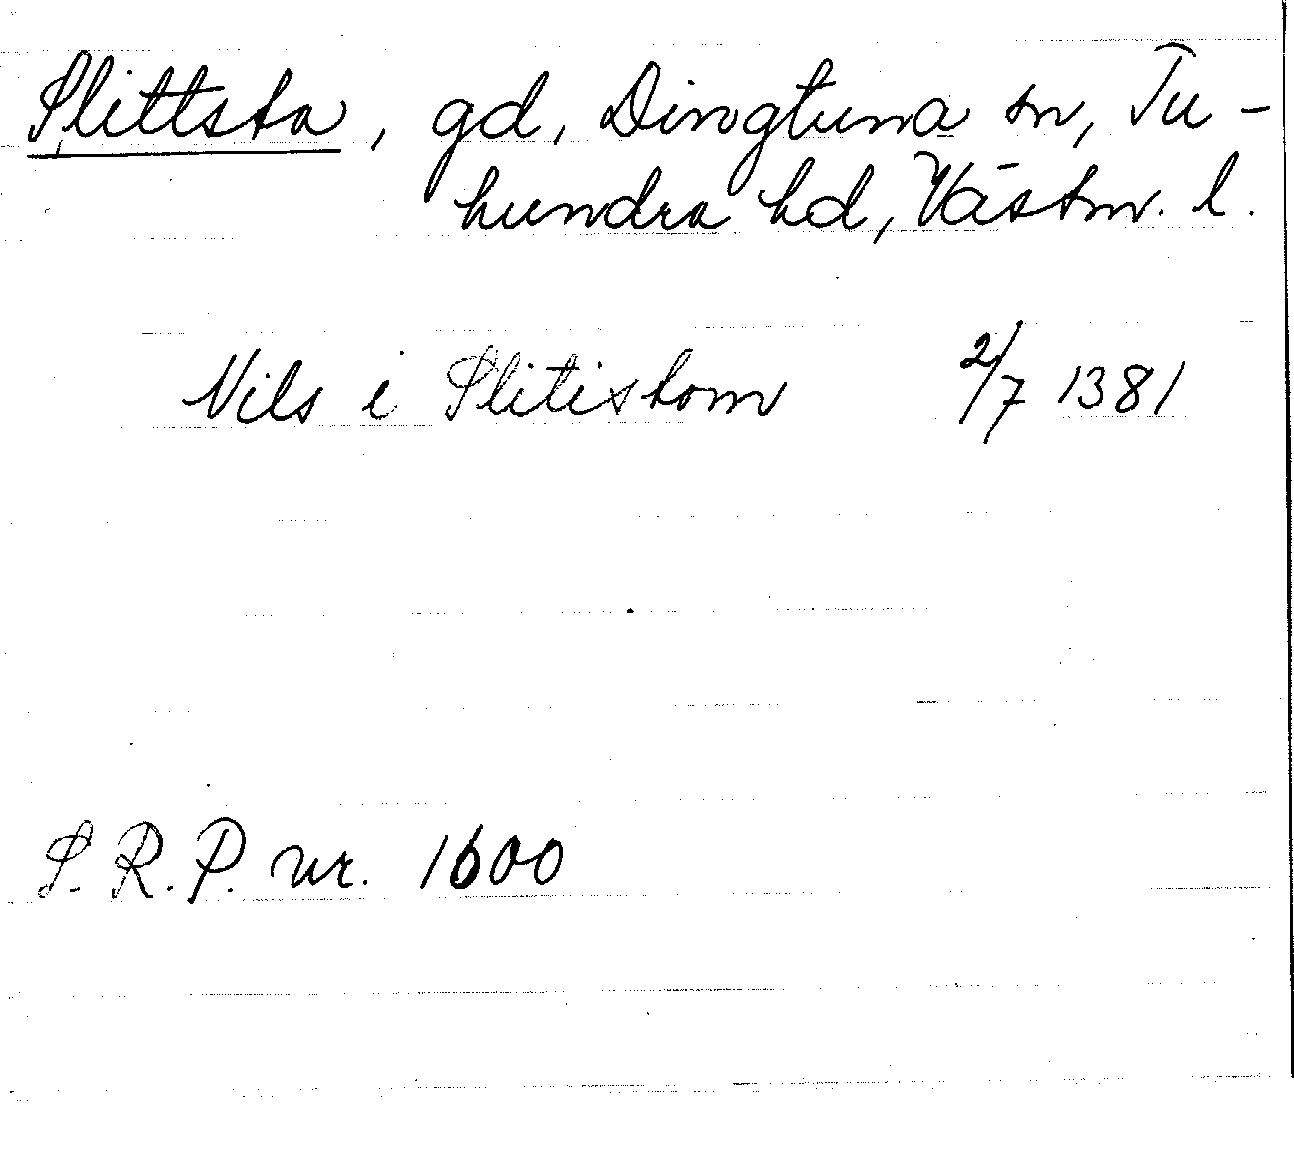 Slittsta, gd, Dingtuna sn, Tu-
hundra hd, Västm. l.
Nils i Slitistom 2/7 1381
S. R. P. nr. 1600